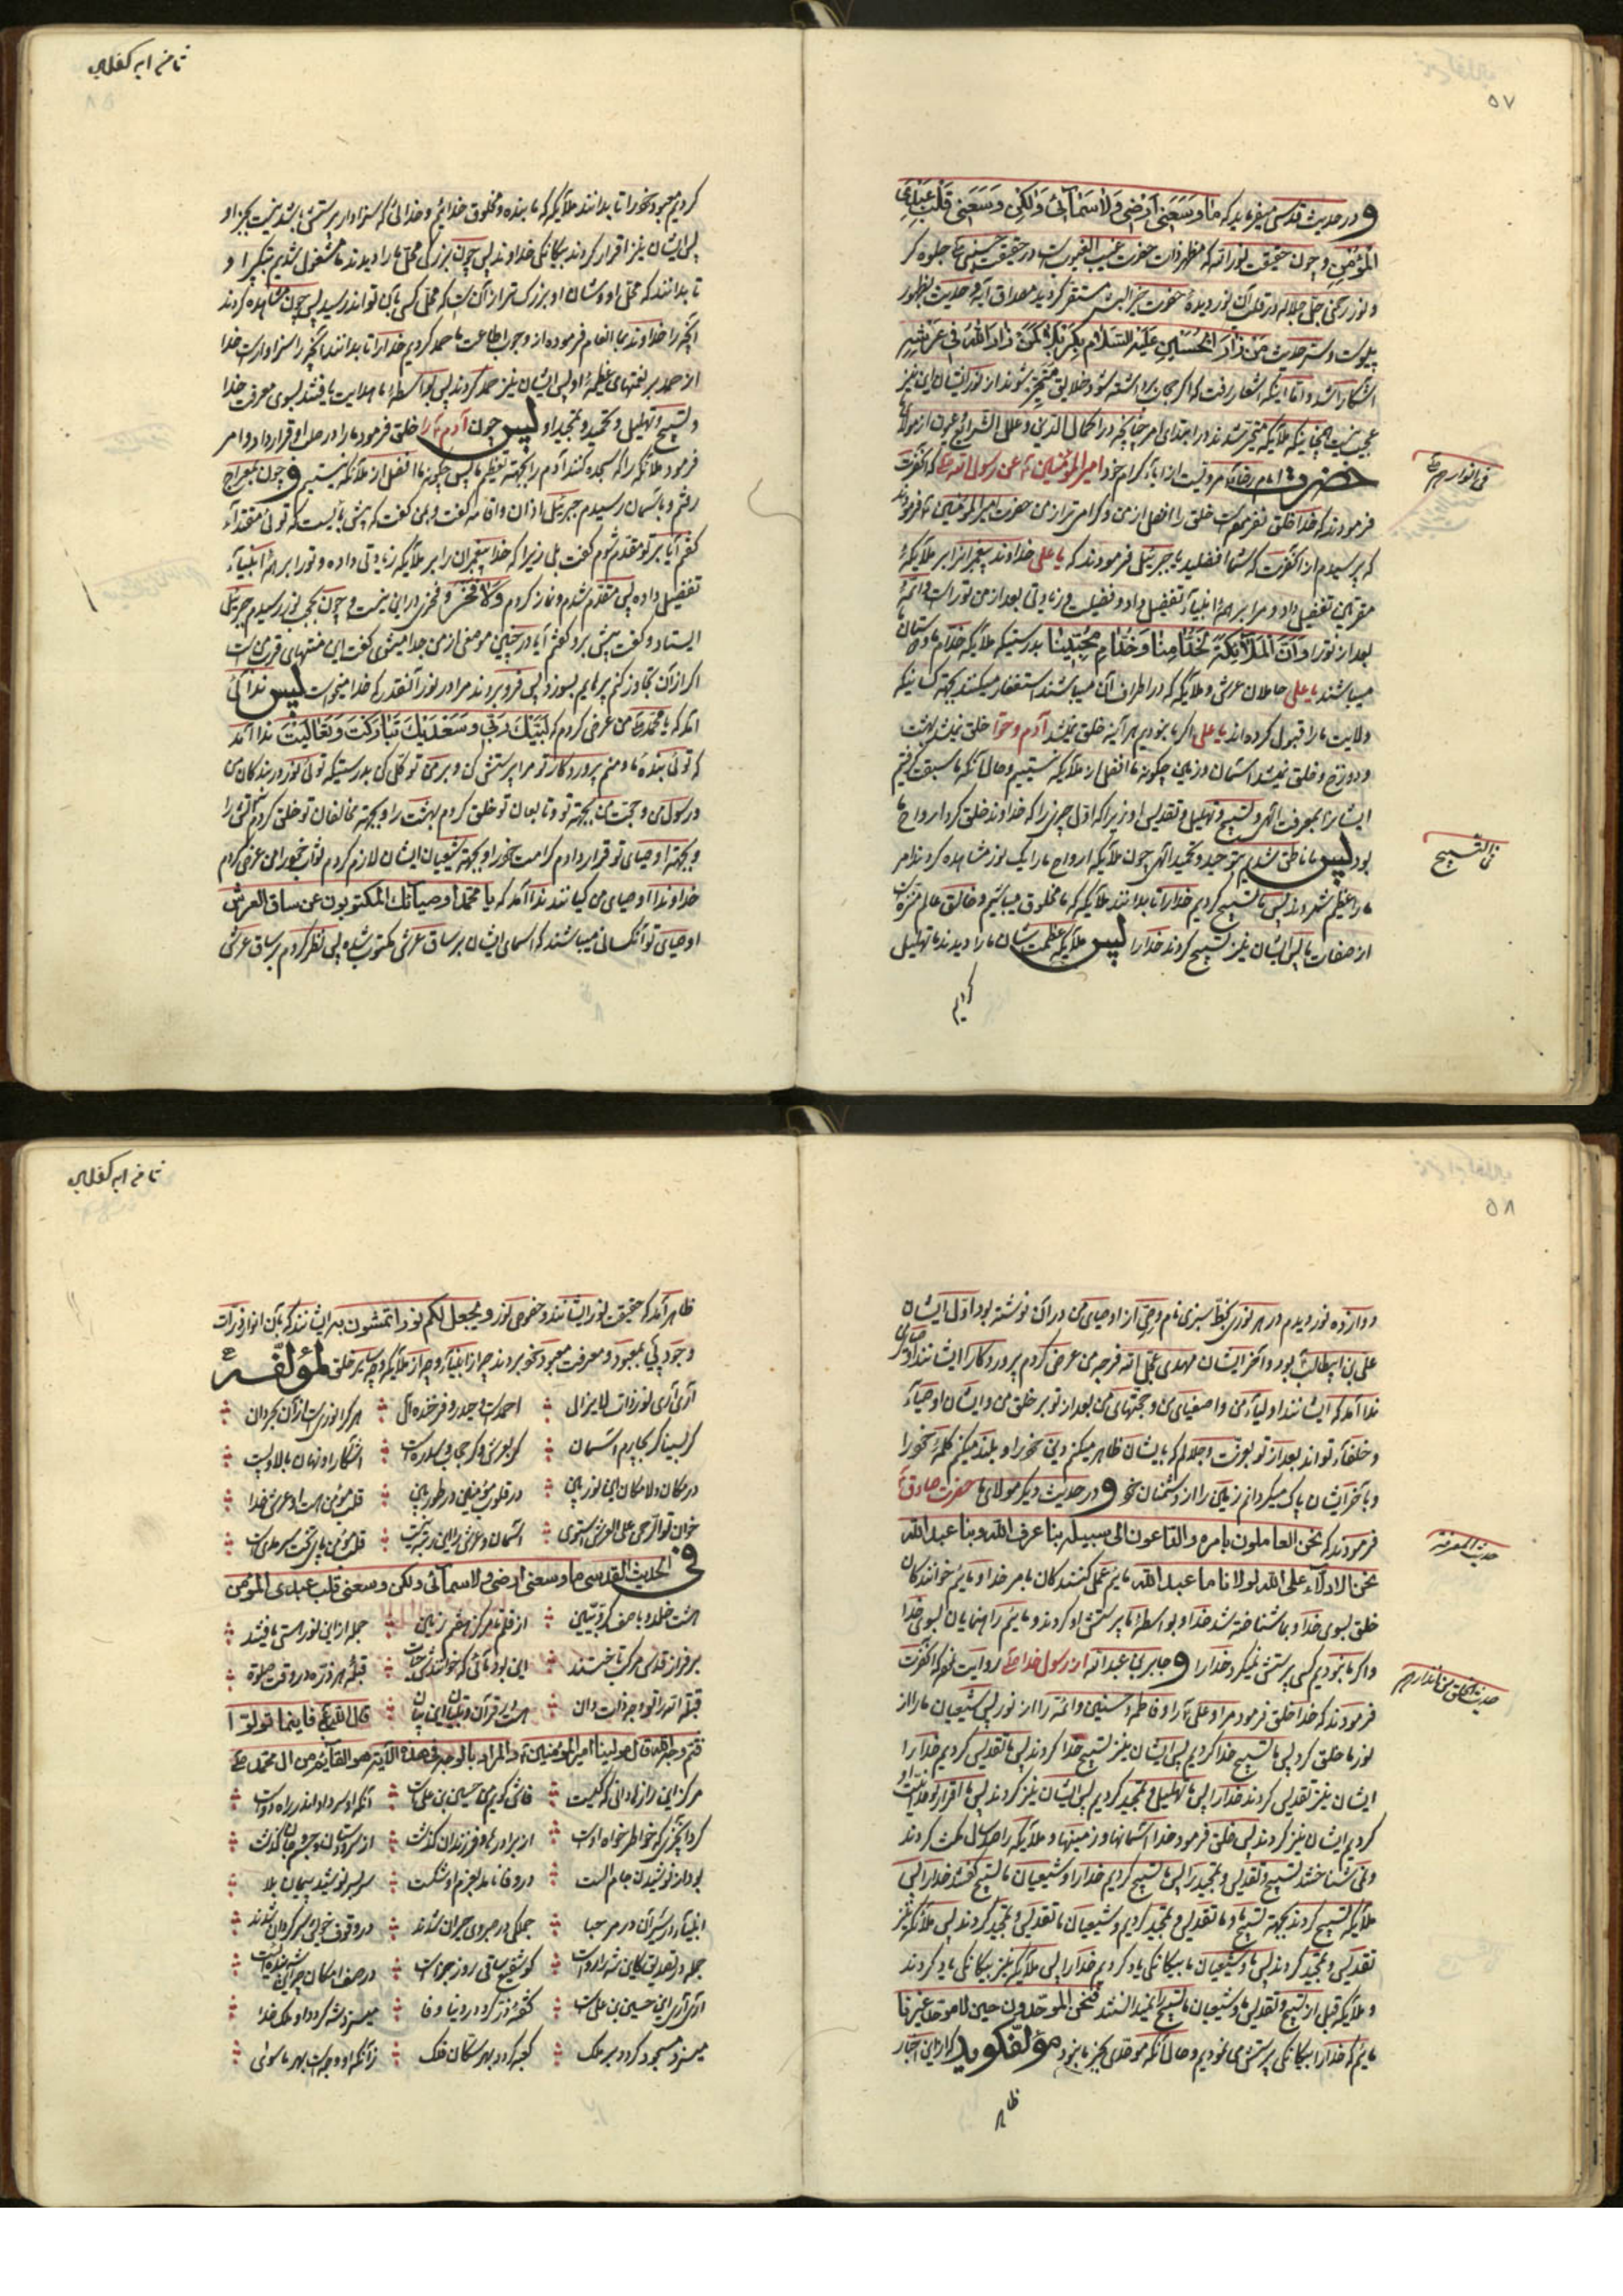 ۵۷
و در حدیث قدسی میفرماید که مٰا وَسَعَنِی اَرْضِی وَلٰا سَمٰآئی وَلٰکِن وَسَعَنِی قَلْبُ عَبْدِیَ
المُؤمِنِ و چون حقیقت نورانیه که مظهر ذات حضرت غیب الغیوبست در حقیقت حسینی ع جلوه گر
و نور رحمن جل جلاله در قلب آن نور دیدهٔ حضرت خیر البشر مستقر گردید مصداق آیه و حدیث بظهور
پیوست و سِرّ حدیث مَنْ زٰارَ الحُسَیْنِ عَلَیْهِ السَّلٰام بِکَرْبَلٰا کَمَنْ زٰارَ اللهُ فِی عَرْشِهِ
آشکارا شد و اما اینکه اشعار رفت که اگر حجاب برداشته شود خلایق متحیر شوند از نور ایشان این نیز
عجب نیست همچنانکه ملآیکه متحیر شدند در ابتدای امر چنانچه در اکمال الدین و علل الشرائع عربی از مولای
فی انوارهم ع
حضرت امام رضا ع مرویست از آبآء کرام خود امیر المؤمنین ع عن رسول الله ص که آنحضرت
فرمودند که خدا خلق نفرموده است خلقی را افضل از من و گرامی تر از من حضرت امیر المؤمنین ع فرمود
که پرسیدم از آنحضرت که شما افضلید یا جبرئیل فرمودند که یا علی خداوند پیغمبرانرا بر ملآیکهٔ
مقربین تفضیل داد و مرا بر همهٔ انبیآء تفضیل داد و فضیلت و زیادتی بعد از من توراست و ائمهٔ
بعد از تورا وَاَنَّ الْمَلٰآئِکَةَ لَخُدّٰامُنٰا وَخُدّٰامِ مُحِبّینٰا بدرستیکه ملآیکه خدام ما و دوستان ما
میباشند یا علی حاملان عرش و ملآیکه که در اطراف آن میباشند استغفار میکنند بجهة کسانیکه
ولایت ما را قبول کرده‌اند یا علی اگر ما نبودیم هر آینه خلق نمیشد آدم و حوا خلق نمیشد بهشت
و دوزخ و خلق نمیشد آسمان و زمین چگونه ما افضل از ملآیکه نیستیم و حال آنکه ما سبقت گرفتیم
ایشانرا بمعرفت الهی و تسبیح و تهلیل و تقدیس او زیرا که اول چیزیرا که خداوند خلق کرد ارواح ما
فی التسبیح
بود پس ما ناطق شدیم بتوحید و تحمید الهی چون ملآیکه ارواح ما را یک نور مشاهده کردند امر
ما را عظیم شمردند پس ما تسبیح کردیم خدا را تا بدانند ملآیکه که ما مخلوق میباشیم و خالق عالم منزه است
از صفات ما پس ایشان نیز تسبیح کردند خدا را پس ملآیکه عظمت شان ما را دیدند ما تهلیل
کردیم
کردیم معبود خود را تا بدانند ملآیکه که ما بنده و مخلوق خدائیم و خدائی که سزاوار پرستش باشد نیست بجز او
پس ایشان نیز اقرار کردند بیگانگی خداوند پس چون بزرگی محل ما را دیدند ما مشغول شدیم بتکبیر او
تا بدانند که محل او و شان او بزرگ تر از آن است که محل کسی بآن تواند رسید پس چون مشاهده کردند
آنچه را خداوند بما انعام فرموده از وجوب اطاعت ما حمد کردیم خدا را تا بدانند آنچه را سزاوار است خدا
از حمد بر نعمتهای عظیمهٔ او پس ایشان نیز حمد کردند پس بواسطهٔ ما هدایت یافتند بسوی معرفت خدا
و تسبیح و تهلیل و تحمید و تمجید او پس چون آدم ع را خلق فرمود ما را در صلب او قرار داد و امر
فرمود ملآئکه را که سجده کنند آدم را بجهة تعظیم ما پس چگونه ما افضل از ملآئکه نیستیم و چون بمعراج
رفتم و بآسمان رسیدم جبرئیل اذان و اقامه گفت و بمن گفت که پیش بایست که توئی مقتدآء
گفتم آیا بر تو مقدم شوم گفت بلی زیرا که خدا پیغمبران را بر ملآیکه زیادتی داده و تو را بر همهٔ انبیآء
تفضیل داده پس مقدم شدم و نماز کردم وَلٰا فَخْرَ و فخری در این نیست و چون بحجب نور رسیدم جبرئیل
ایستاد و گفت پیش برو گفتم آیا در چنین موضعی از من جدا میشوی گفت این منتهای قرب من است
اگر از آن تجاوز کنم پرهایم بسوزد پس فرو بردند مرا در نور آنقدر که خدا میخواست پس ندائی
آمد که یا محمد ص من عرض کردم که لَبَّیْکَ رَبّی وَسَعْدَیْکَ تَبٰارَکْتَ وَتَعٰالَیْتَ ندا آمد
که توئی بندهٔ ما و منم پروردگار تو مرا پرستش کن و بر من توکل کن بدرستیکه توئی نور در بندگان من
و رسول من و حجت من بجهة تو و تابعان تو خلق کردم بهشت را و بجهة مخالفان تو خلق کردم آتش را
و بجهة اوصیای تو قرار دادم کرامت خود را و بجهة شیعیان ایشان لازم کردم ثواب خود را من عرض کردم
خداوندا اوصیای من کیانند ندا آمد که یا محمد اوصیآئک المکتوبون عن ساق العرش
اوصیای تو آنکسانی میباشند که اسمای ایشان بر ساق عرش مکتوب شده پس نظر کردم بر ساق عرش
۵۸
دوازده نور دیدم در هر نوری بخط سبزی نام وصیی از اوصیای من در آن نوشته بود اول ایشان
علی بن ابیطالب بود و آخر ایشان مهدی عجل الله فرجه من عرض کردم پروردگارا ایشانند اوصیای من
ندا آمد که ایشانند اولیآء من و اصفیای من و حجتهای من بعد از تو بر خلق من و ایشان اوصیآء
و خلفآء تواند بعد از تو بعزت و جلالم که بایشان ظاهر میکنم دین خود را و بلند میکنم کلمهٔ خود را
و بآخر ایشان پاک میگردانم زمین را از دشمنان خود و در حدیث دیگر مولای ما حضرت صادق ع
حدیث المعرفة
فرمودند که نحن العاملون بامره والداعون الی سبیله بنا عرف الله وبنا عبد الله
نحن الادلآء علی الله لولانا ما عبد الله مائیم عمل کنندگان بامر خدا و مائیم خوانندگان
خلق بسوی خدا و بما شناخته شد خدا و بواسطهٔ ما پرستش او کردند و مائیم راهنمایان بسوی خدا
و اگر ما نبودیم کسی پرستش نمیکرد خدا را و جابر بن عبد الله از رسول خدا ص روایت نموده که آنحضرت
فرمودند که خدا خلق فرمود مرا و علی ع را و فاطمه و حسنین و ائمه را از نور پس شیعیان ما را از
نور ما خلق کرد پس ما تسبیح خدا کردیم پس ایشان نیز تسبیح خدا کردند پس ما تقدیس کردیم خدا را
ایشان نیز تقدیس کردند خدا را پس ما تهلیل و تمجید کردیم پس ایشان نیز کردند پس ما اقرار بوحدانیت او
کردیم ایشان نیز کردند پس خلق فرمود خدا آسمانها و زمینها و ملآیکه را صد سال مکث کردند
و نمی شناختند تسبیح و تقدیس و تمجید را پس ما تسبیح کردیم خدا را و شیعیان ما تسبیح گفتند خدا را پس
ملآیکه تسبیح کردند بجهة تسبیح ما و ما تقدیس و تمجید کردیم و شیعیان ما تقدیس و تمجید کردند پس ملآئکه نیز
تقدیس و تمجید کردند پس ما و شیعیان ما بیگانگی یاد کردیم خدا را پس ملآیکه نیز بیگانگی یاد کردند
و ملآیکه قبل از تسبیح و تقدیس ما و شیعیان ما تسبیح را نمیدانستند فنحن الموحدون حین لا موحد غیرنا
مائیم که خدا را بیگانگی پرستش می نمودیم و حال آنکه موحدی بجز ما نبود مؤلف گوید که از این اخبار
ظا
ظاهر آمد که حقیقت نور ایشانند و خصوص نور و یجعل لکم نوراً تمشون به ایشانند که بآن انوار ذرات
وجود پی بمعبود و معرفت معبود خود بردند چه از انبیآء و چه از ملآیکه و چه سایر خلق لمؤلفه
آری آری نور ذات لایزال احمد است و حیدر و فرخنده آل هر کرا نوریست از آن بحر دان
گر بسینا گر بچارم آسمان گر بعرش و گر حجاب و سدره است آشکارا و نهان بالا و پست
در مکان و لامکان این نور بین در قلوب مؤمنین در طور بین قلب مؤمن هست او عرش خدا
خوان تو الرحمن علی العرش استوی آسمان و عرش را این رتبه نیست قلب مؤمن پای تخت سرمدیست
فی الحدیث القدسی ما وسعنی ارضی ولا سمآئی ولکن وسعنی قلب عبدی المؤمن
هشت خلد و با صف کروبیین از قلم تا مرکز هفتم زمین جمله از این نور هستی یافتند
بر فراز قدس مرکب تاختند این بود بآنی که خوانندش جهات قبلهٔ هر ذره در وقت صلوة
قبلهٔ الله را تو وجه ذات دان هست قرآن و تبیان این بیان قال الله تع فاینما تولوا
فثم وجه الله قال مولینا امیر المؤمنین ع والمراد بالوجه فی هذه الآیة هو القآئم من آل محمد ص
مرکز این راز نادانی که کیست فاش گویم من حسین بن علیست آنکه او سر داد اندر راه دوست
کرد آنچیزی که خاطرخواه اوست از برادرها و فرزندان گذشت از سر و تن وز جسم و جان گذشت
بود از نوشیدن جام الست در وفا نامد بعزم او شکست سر بسر نوشید پیمان بلا
انبیآء در سر آن در مرحبا جملگی در صبر وی حیران شدند در وقوف خویش سرگردان شدند
جمله در تصدیق کاین شه را رواست کو شفیع و ساقی روز جزاست
آری آری این حسین بن علیست
میسزد مسجود گردد بر ملک کعبه گردد بهر سکان فلک زآنکه او وجهست بهر ماسوی